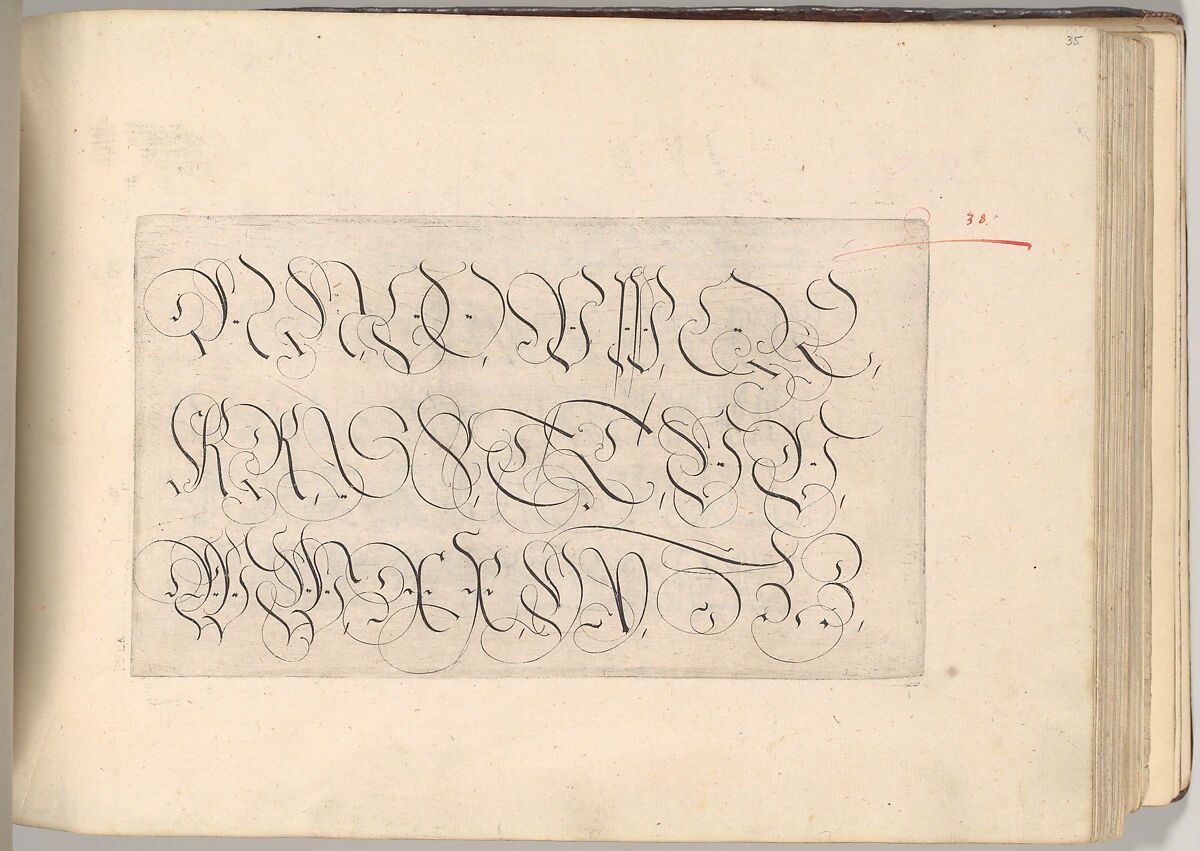 35
38.
N N, O O, P P, Q Q,
R R, S S, T T, V V,
W W, X X, Y Y, Z Z,